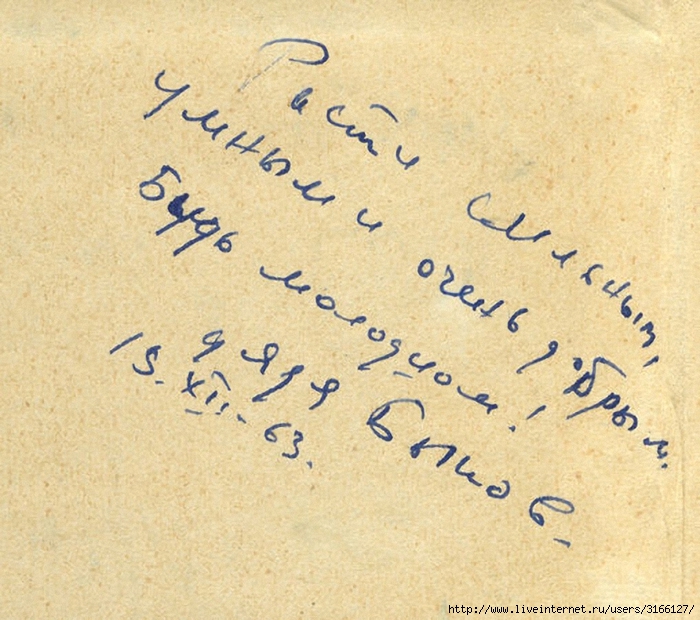 Расти сильным,
умным и очень добрым.
Будь молодцом!
дядя Быков.
15.XII.63.
http://www.liveinternet.ru/users/3166127/